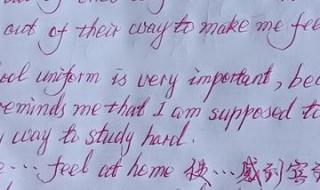 out of their way to make me fee
ool uniform is very important, bec
reminds me that I am supposed to
way to study hard.
... feel at home 使...感到宾至